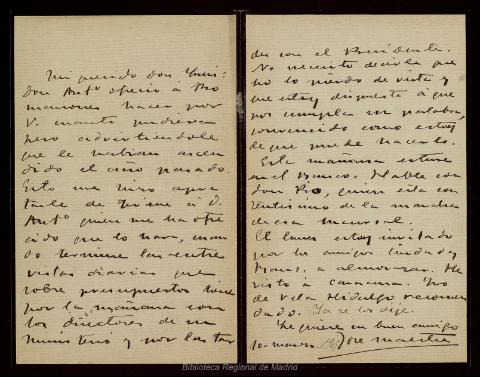 Mi querido don Luis:
don Antº ofreció á Ro
manones hacer por
V. cuanto pudiera
pero advirtiendole
que le habian ascen
dido el año pasado.
Esto me hizo
tarle de firme á D.
Antº quien me ha ofre
cido que lo hara, cuan
do termine las entre
vistas diarias que
sobre presupuestos tiene
por la mañana con
los directores de su
ministerio y por las tar
des con el Presidente.
No necesito decirle que
no lo pierdo de vista y
que estoy dispuesto á que
nos cumplan su palabra,
convencido como estoy
de que puede hacerlo.
Esta mañana estuve
en el Banco. Hable con
don Pio, quien está con
tentisimo de la marcha
de esa sucursal.
El lunes estoy invitado
por los amigos
á almorzar. He
visto á
de Vila Hidalgo recomen
dado. Ya se los dije.
Le quiere su buen amigo
10-marzo José Maestre
Biblioteca Regional de Madrid